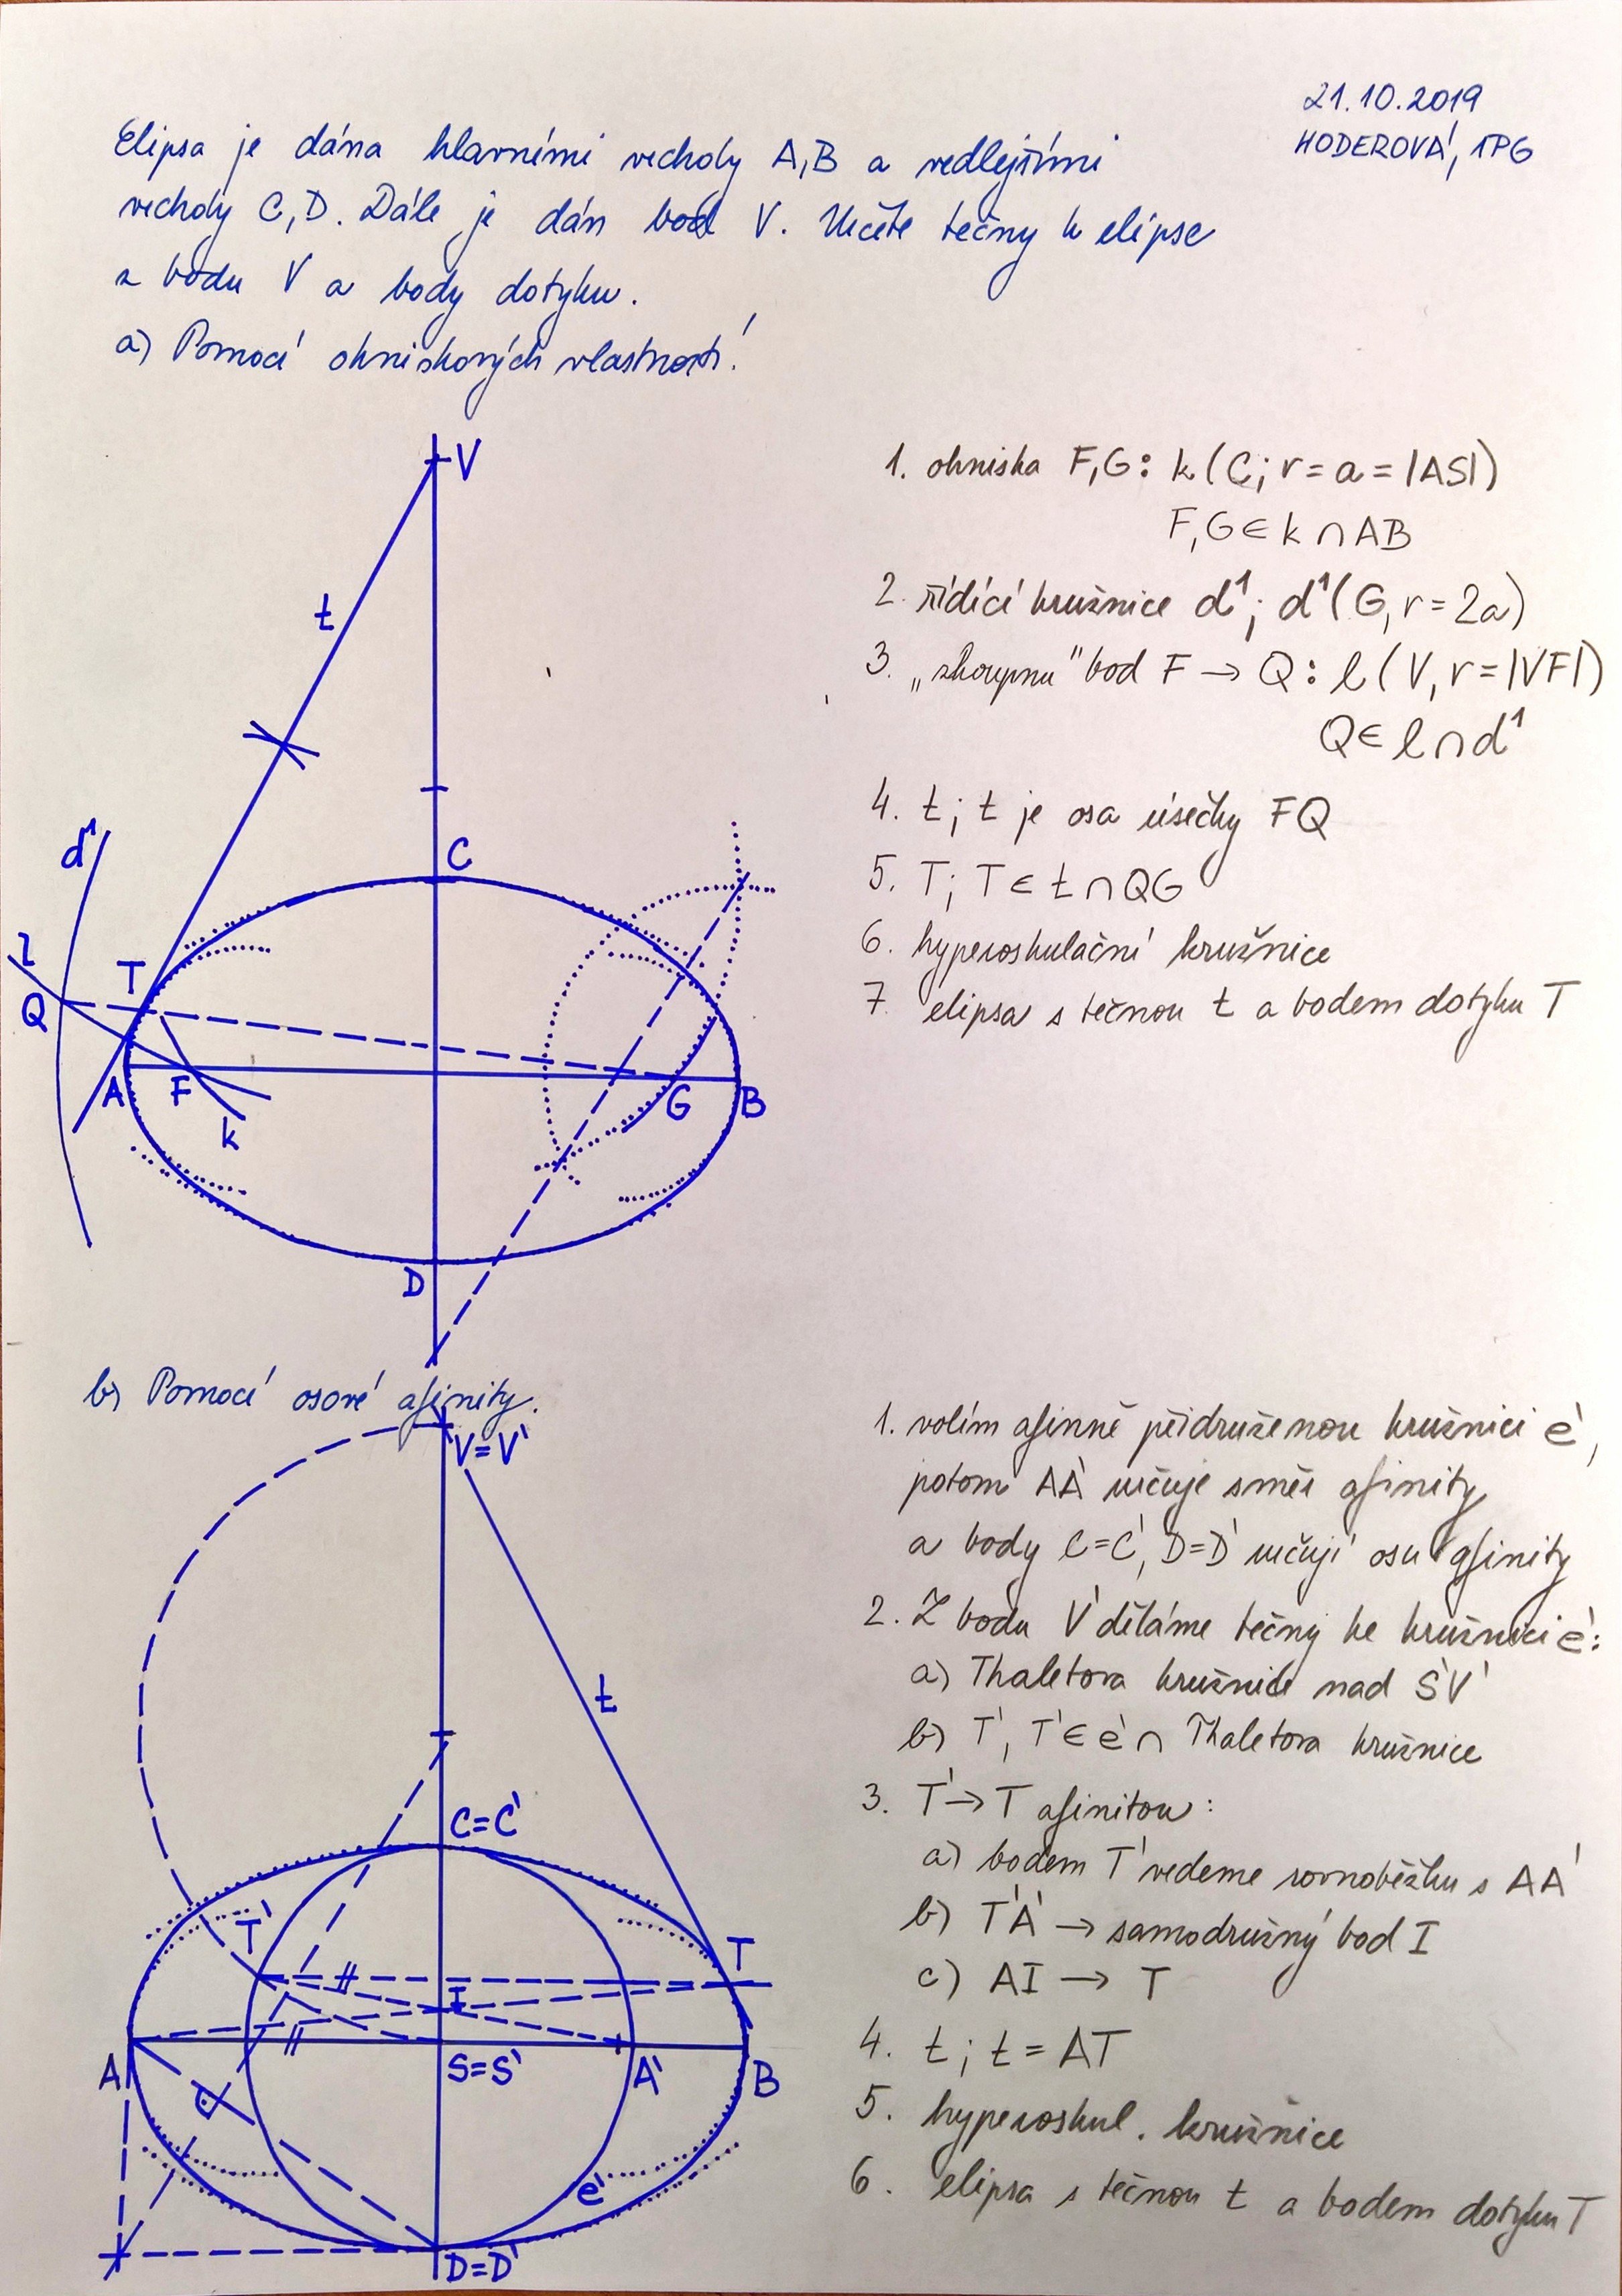 21.10.2019
HODEROVÁ, 1PG
Elipsa je dána hlavními vrcholy A,B a vedlejšími
vrcholy C,D. Dále je dán bod V. Určete tečny k elipse
z bodu V a body dotyku.
a) Pomocí ohniskových vlastností!
V
t
d¹
C
l
T
Q
A
F
k
G
B
D
1. ohniska F,G: k(C; r=a=|AS|)
F,G∈k∩AB
2. řídící kružnice d¹; d¹(G, r=2a)
3. „shoupnu" bod F → Q: l(V, r=|VF|)
Q∈l∩d¹
4. t; t je osa úsečky FQ
5. T; T∈t∩QG
6. hyperoskulační kružnice
7. elipsa s tečnou t a bodem dotyku T
b) Pomocí osové afinity.
V=V'
t
C=C'
T'
T
I
A
S=S'
A'
B
e'
D=D'
1. volím afinně přidruženou kružnici e',
potom AA' určuje směr afinity
a body C=C', D=D' určují osu afinity
2. Z bodu V' děláme tečny ke kružnici e':
a) Thaletova kružnice nad S'V'
b) T', T'∈e'∩ Thaletova kružnice
3. T'→T afinitou:
a) bodem T' vedeme rovnoběžku s AA'
b) T'A' → samodružný bod I
c) AI → T
4. t; t=AT
5. hyperoskul. kružnice
6. elipsa s tečnou t a bodem dotyku T